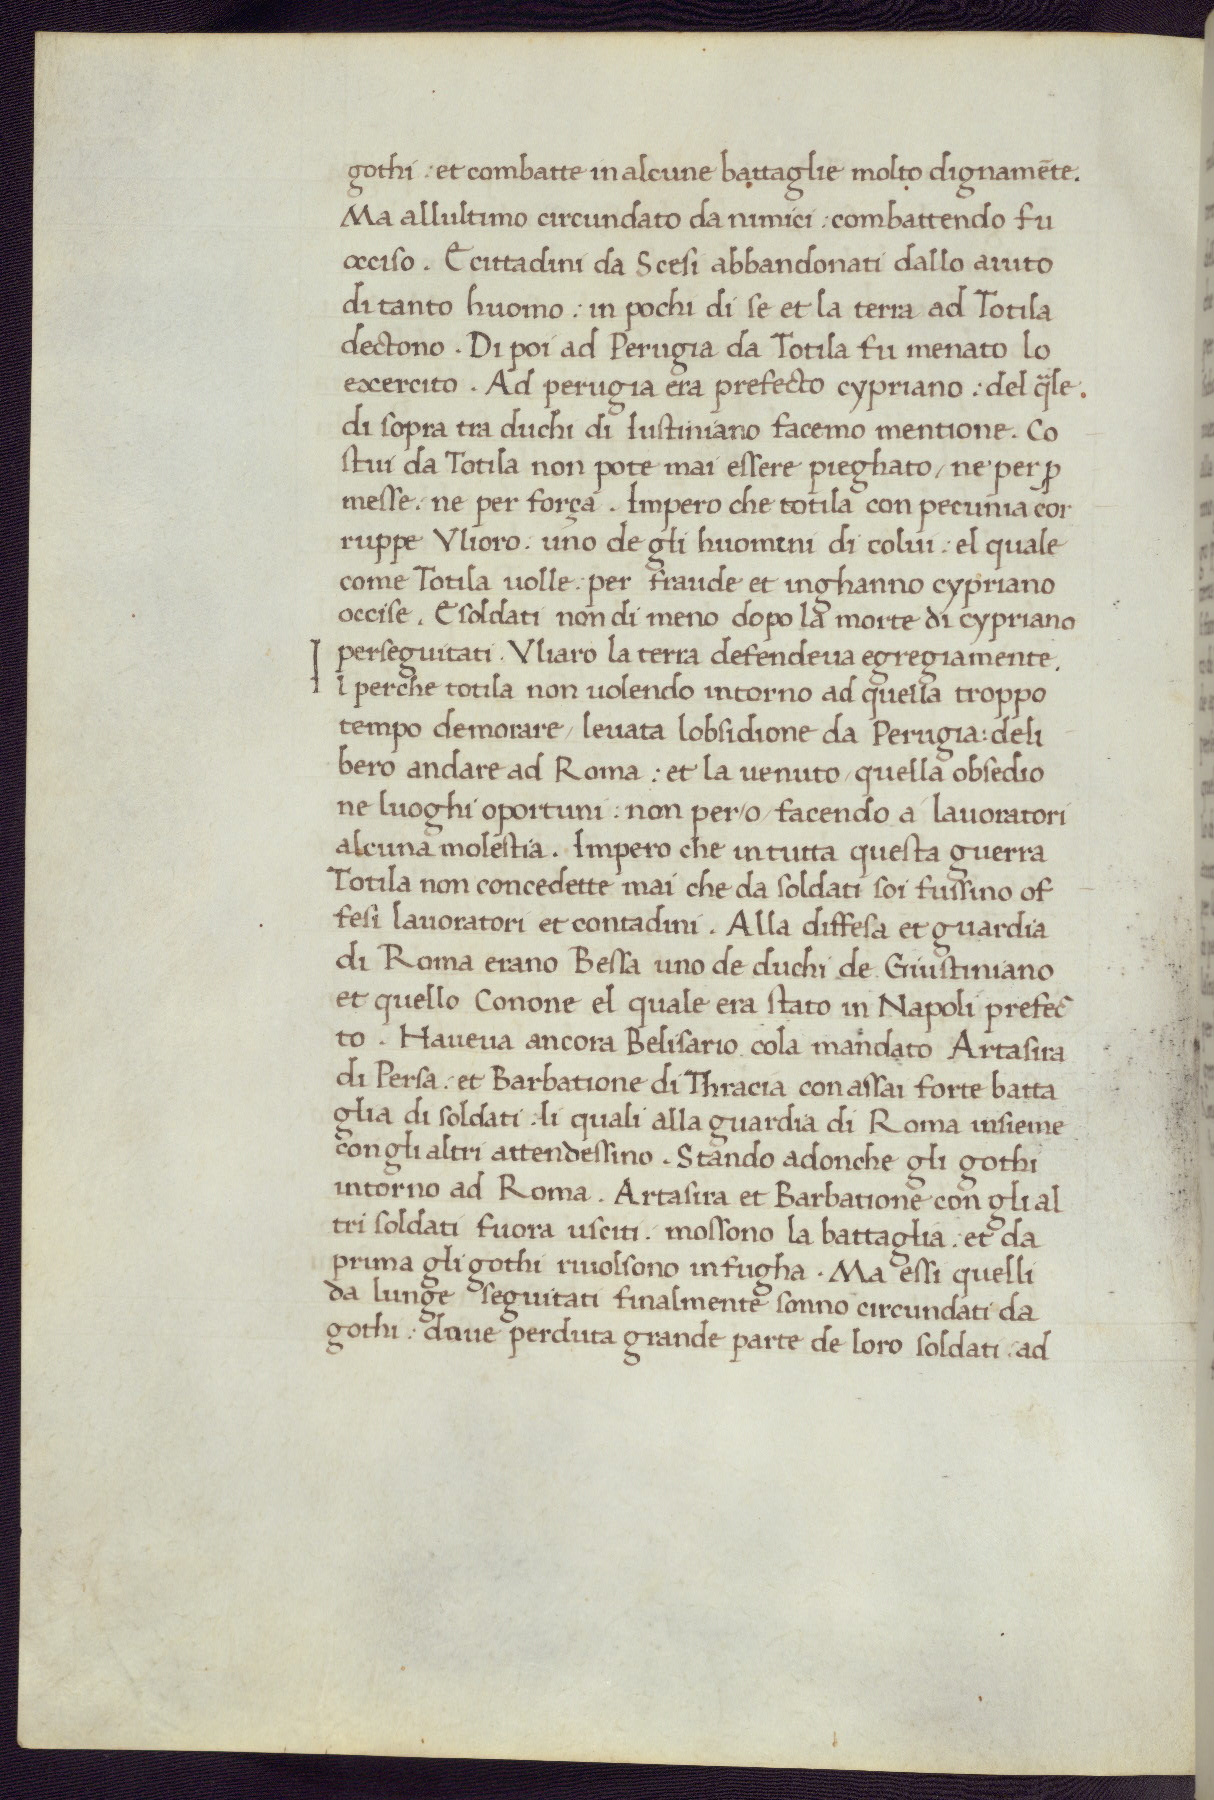 gothi : et combatte in alcune battaglie molto dignamēte.
Ma allultimo circundato da nimici : combattendo fu
occiso . E cittadini da Scesi abbandonati dallo aiuto
di tanto huomo : in pochi di se et la terra ad Totila
dectono . Di poi ad Perugia da Totila fu menato lo
exercito . Ad perugia era prefecto cypriano : del q̃le .
di sopra tra duchi di Iustiniano facemo mentione . Co
stui da Totila non pote mai essere pieghato / ne per ꝓ
messe : ne per força . Impero che totila con pecunia cor
ruppe Vlioro : uno de gli huomini di colui : el quale
come Totila uolle : per fraude et inghanno cypriano
occise . E soldati non di meno dopo la morte di cypriano
perseguitati . Vliaro la terra defendeua egregiamente .
I l perche totila non uolendo intorno ad quella troppo
tempo demorare / leuata lobsidione da Perugia : deli
bero andare ad Roma : et la uenuto / quella obsedio
ne luoghi oportuni : non per/o/ facendo a lauoratori
alcuna molestia . Impero che in tutta questa guerra
Totila non concedette mai che da soldati soi fussino of
fesi lauoratori et contadini . Alla diffesa et guardia
di Roma erano Bessa uno de duchi de Giustiniano
et quello Conone el quale era stato in Napoli prefec
to . Haueua ancora Belisario cola mandato Artasira
di Persa : et Barbatione di Thracia con assai forte batta
glia di soldati : li quali alla guardia di Roma insieme
con gli altri attendessino . Stando adonche gli gothi
intorno ad Roma . Artasira et Barbatione con gli al
tri soldati fuora usciti : mossono la battaglia : et da
prima gli gothi riuolsono in fugha . Ma essi quelli
da lunge seguitati finalmente sonno circundati da
gothi : doue perduta grande parte de loro soldati : ad